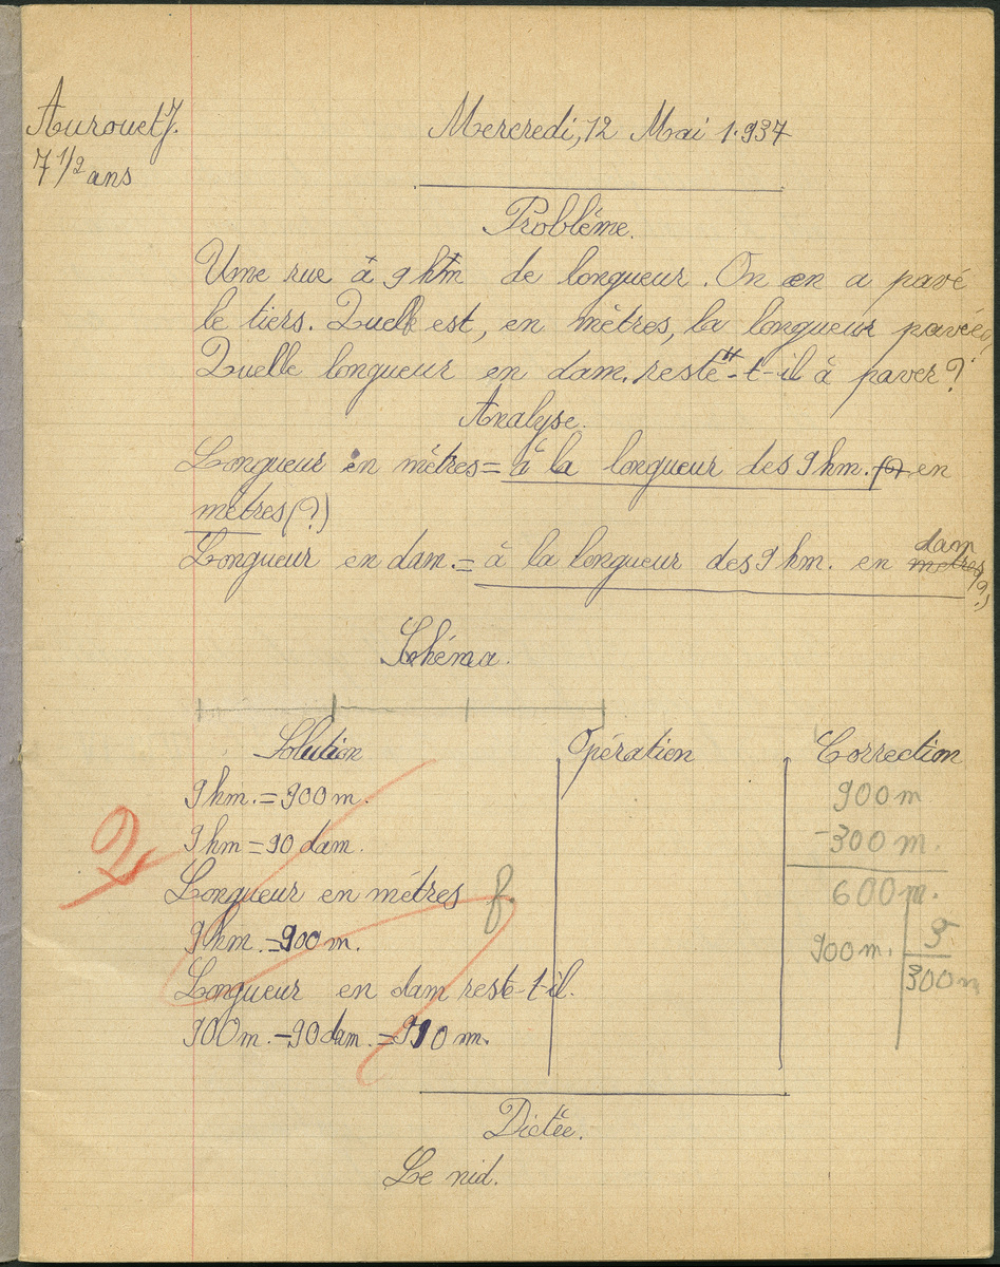 Aurouet J.
7 1/2 ans
Mercredi, 12 Mai 1.937
Problème.
Une rue à 9 hm de longueur. On en a pavé
le tiers. Quelle est, en mètres, la longueur pavée,
Quelle longueur en dam. reste-t-il à paver?
Analyse.
Longueur en mètres = à la longueur des 9 hm. en
mètres (?)
Longueur en dam. = à la longueur des 9 hm. en mètres dam (?)
Schéma.
Solution
Opération
Correction
9 hm. = 900 m.
9 hm = 90 dam.
Longueur en mètres
9 hm. = 900 m.
Longueur en dam reste-t-il.
900 m. - 90 dam. = 910 m.
2
f.
900 m
-300 m.
600 m.
900 m. 3
300 m
Dictée.
Le nid.